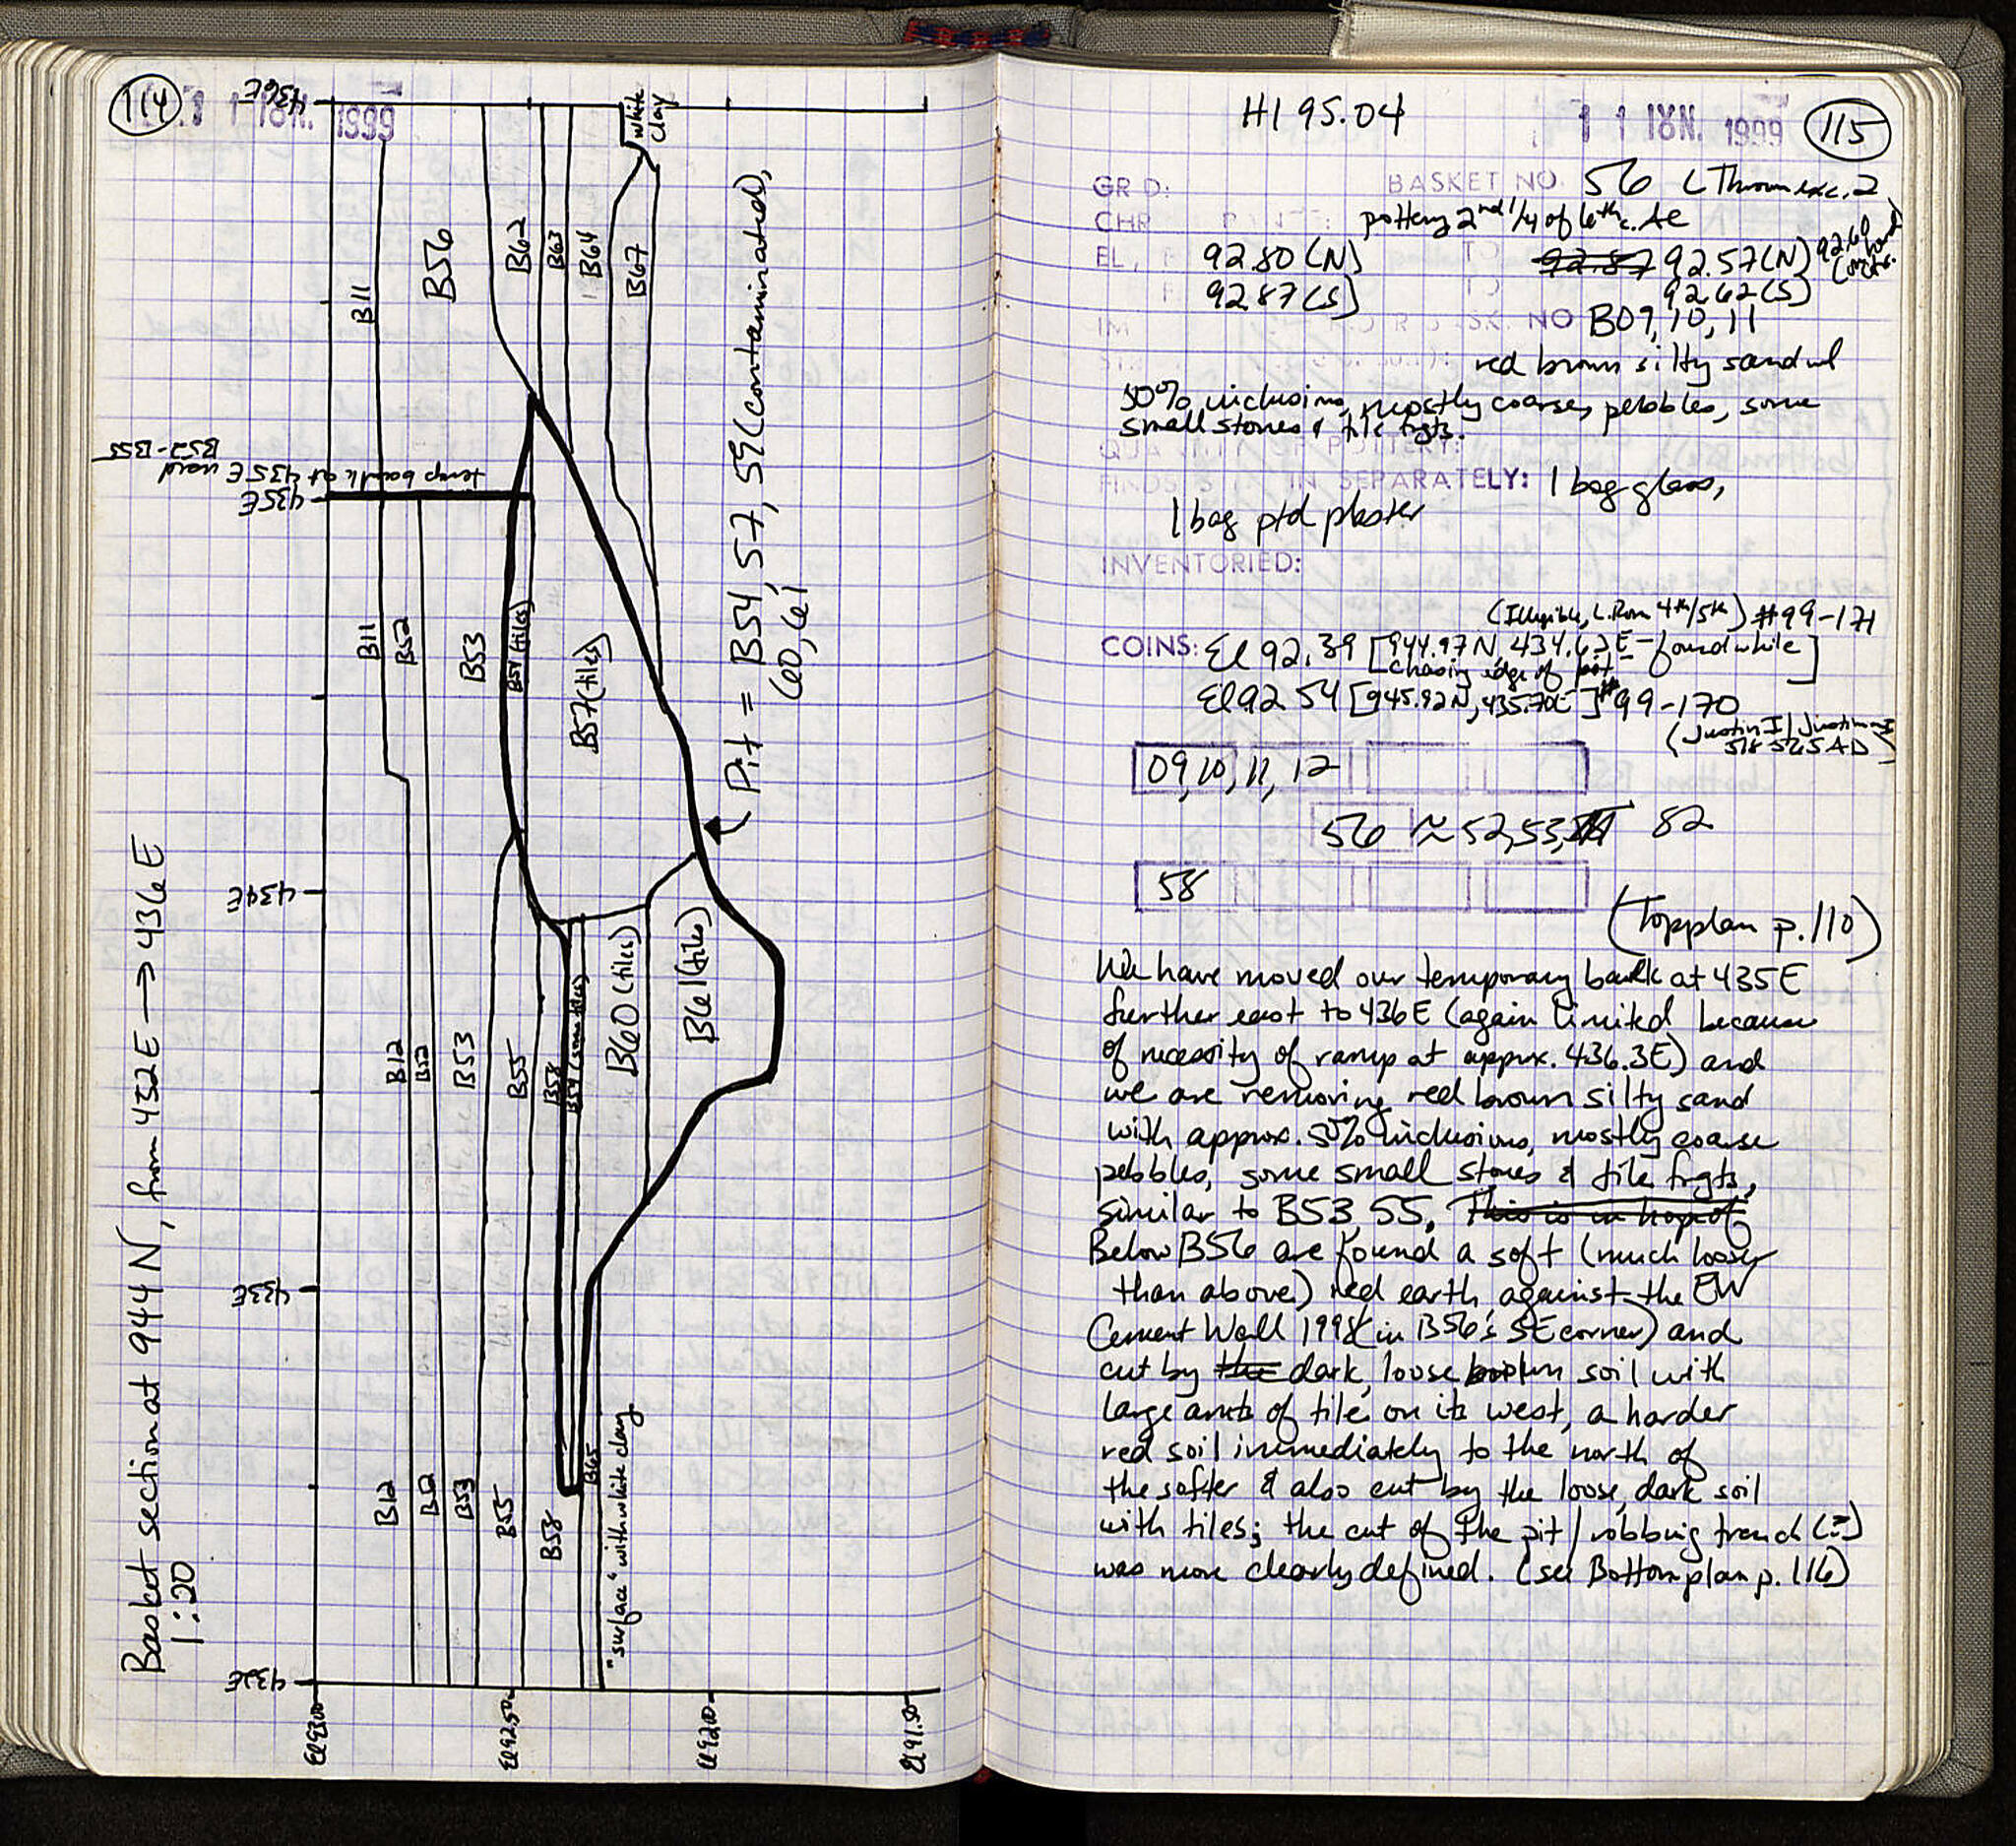 114
11 ΙΟΥΝ. 1999
Basket section at 944 N, from 432E → 436E
1:20
436E
435E
434E
433E
432E
temp baulk at 435E used
B52-B55
El 93.00
El 92.50
El 92.00
El 91.50
B11
B56
B62
B63
B64
B67
white
clay
B11
B52
B53
B54 (tiles)
B57 (tiles)
Pit = B54, 57, 59 (contaminated),
60, 61
B12
B52
B53
B55
B58
B59 (some tiles)
B60 (tiles)
B61 (tiles)
B12
B52
B53
B55
B58
B65
"surface" with white clay
H1 95.04
11 ΙΟΥΝ. 1999
115
GRID:
BASKET NO. 56 (Throw exc. 2
CHR
pottery 2nd 1/4 of 6th c. AC
EL, F 92.80 (N) TO 92.87 92.57 (N) 92.60
92.87 (S) 92.62 (S)
NO B09, 10, 11
red brown silty sand w/
50% inclusions, mostly coarse, pebbles, some
small stones & tile frgts.
QUANTITY OF POTTERY:
FINDS IN SEPARATELY: 1 bag glass,
1 bag ptd plaster
INVENTORIED:
(Illegible, L. Rom 4th/5th) #99-171
COINS: El 92.39 [944.97N, 434.62E - found while
chasing edge of pit]
El 92.54 [945.92N, 435.70E] #99-170
(Justin I/Justinian I
518-525 AD)
09, 10, 11, 12
56 ≈ 52, 53, 82
58
(Topplan p. 110)
We have moved our temporary baulk at 435E
further east to 436E (again limited because
of necessity of ramp at approx. 436.3E) and
we are removing red brown silty sand
with approx. 50% inclusions, mostly coarse
pebbles, some small stones & tile frgts,
similar to B53, 55. This is in hope of
Below B56 are found a soft (much looser
than above) red earth against the EW
Cement Wall 1998 (in B56's SE corner) and
cut by the dark, loose broken soil with
large amts of tile on its west, a harder
red soil immediately to the north of
the softer & also cut by the loose, dark soil
with tiles; the cut of the pit/robbing trench (?)
was more clearly defined. (see Bottomplan p. 116)